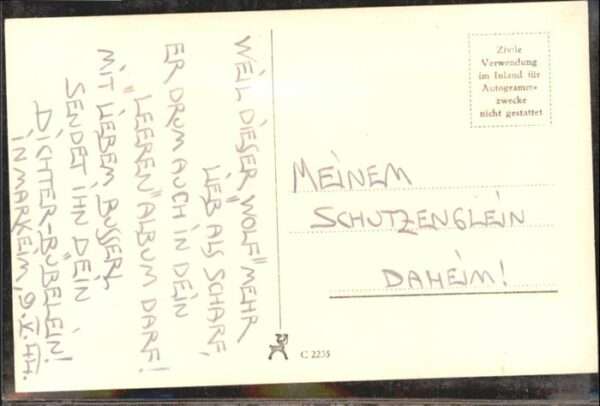 WEIL DIESER "WOLF" MEHR
LIEB ALS SCHARF,
ER DRUM AUCH IN DEIN
"LEEREN" ALBUM DARF!
MIT LIEBEM BUSSERL
SENDET IHN DEIN
DICHTER-BÜBELEIN!
IN MARKEIM, 9.X.44.
Zivile
Verwendung
im Inland für
Autogramm-
zwecke
nicht gestattet
MEINEM
SCHUTZENGLEIN
DAHEIM!
C 2235